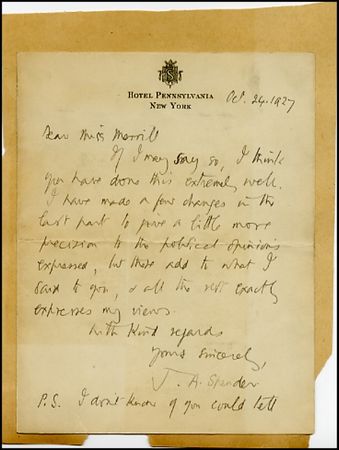 HOTEL PENNSYLVANIA
NEW YORK
Oct. 24. 1927
Dear Miss Merrill
If I may say so, I think
you have done this extremely well.
I have made a few changes in the
last part to give a little more
precision to the political opinions
expressed, but these add to what I
said to you, & all the rest exactly
expresses my views.
With kind regards
Yours sincerely,
J. A. Spender
P.S. I don't know if you could tell